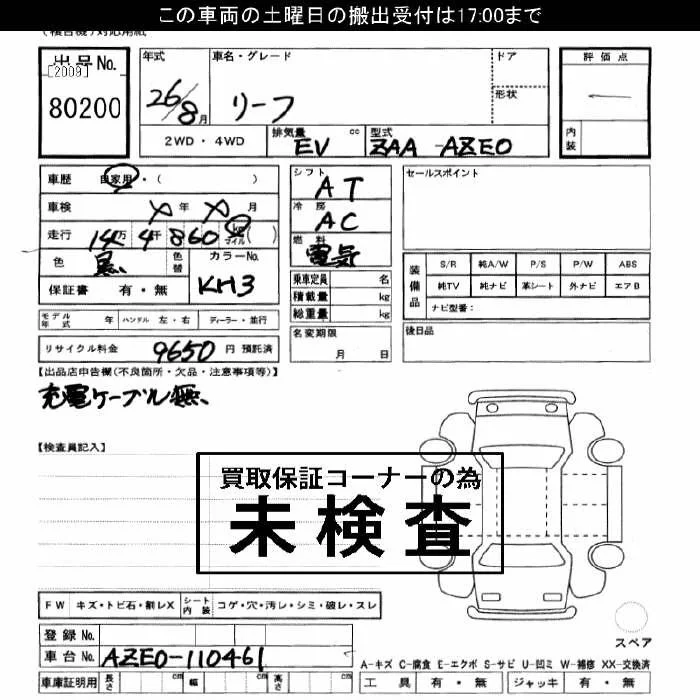 この車両の土曜日の搬出受付は17:00まで
出品No. 年式 車名・グレード ドア 評価点
[2009]
80200 26/8月 リーフ 形状
2WD・4WD 排気量 EV cc 型式 ZAA-AZE0 内装
車歴 自家用・( ) シフト AT セールスポイント
車検 メ年 メ月 冷房 AC
走行 14万4千860 km マイル ( ) 燃料 電気
色 黒 色替 カラーNo. KH3
保証書 有・無 乗車定員 名
装備品 S/R 純A/W P/S P/W ABS
積載量 kg 純TV 純ナビ 革シート 外ナビ エアB
総重量 kg ナビ型番:
モデル年式 年 ハンドル 左・右 ディーラー・並行 名変期限 月 日 後日品
リサイクル料金 9650 円 預託済
【出品店申告欄(不良箇所・欠品・注意事項等)】
充電ケーブル無、
【検査員記入】
買取保証コーナーの為
未検査
FW キズ・トビ石・割レX シート内装 コゲ・穴・汚レ・シミ・破レ・スレ
登録No. スペア
車台No. AZE0-110461
A-キズ C-腐食 E-エクボ S-サビ U-凹ミ W-補修 XX-交換済
車庫証明用 長さ cm 幅 cm 高さ cm 工具 有・無 ジャッキ 有・無